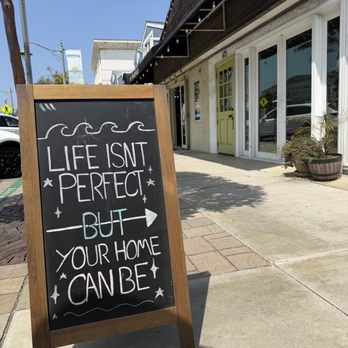 LIFE ISNT
PERFECT
BUT
YOUR HOME
CAN BE